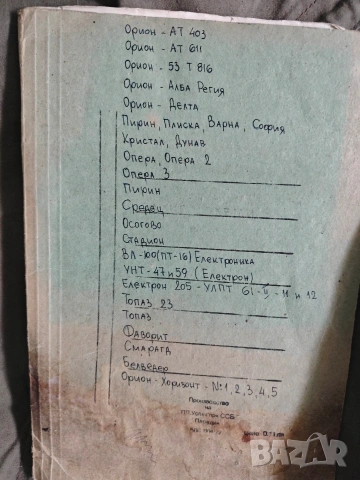 Орион - АТ 403
Орион - АТ 611
Орион - 53 Т 816
Орион - Алба Регия
Орион - Делта
Пирин, Плиска, Варна, София
Кристал, Дунав
Опера, Опера 2
Опера 3
Пирин
Средец
Осогово
Стадион
ВЛ-100 (ПТ-16) Електроника
УНТ-47 и 59 (Електрон)
Електрон 205 - УЛПТ 61-II-11 и 12
Топаз 23
Топаз
Фаворит
Смарагд
Белведер
Орион - Хоризонт - №1,2,3,4,5
Производство
на
Пловдив
BAZAR